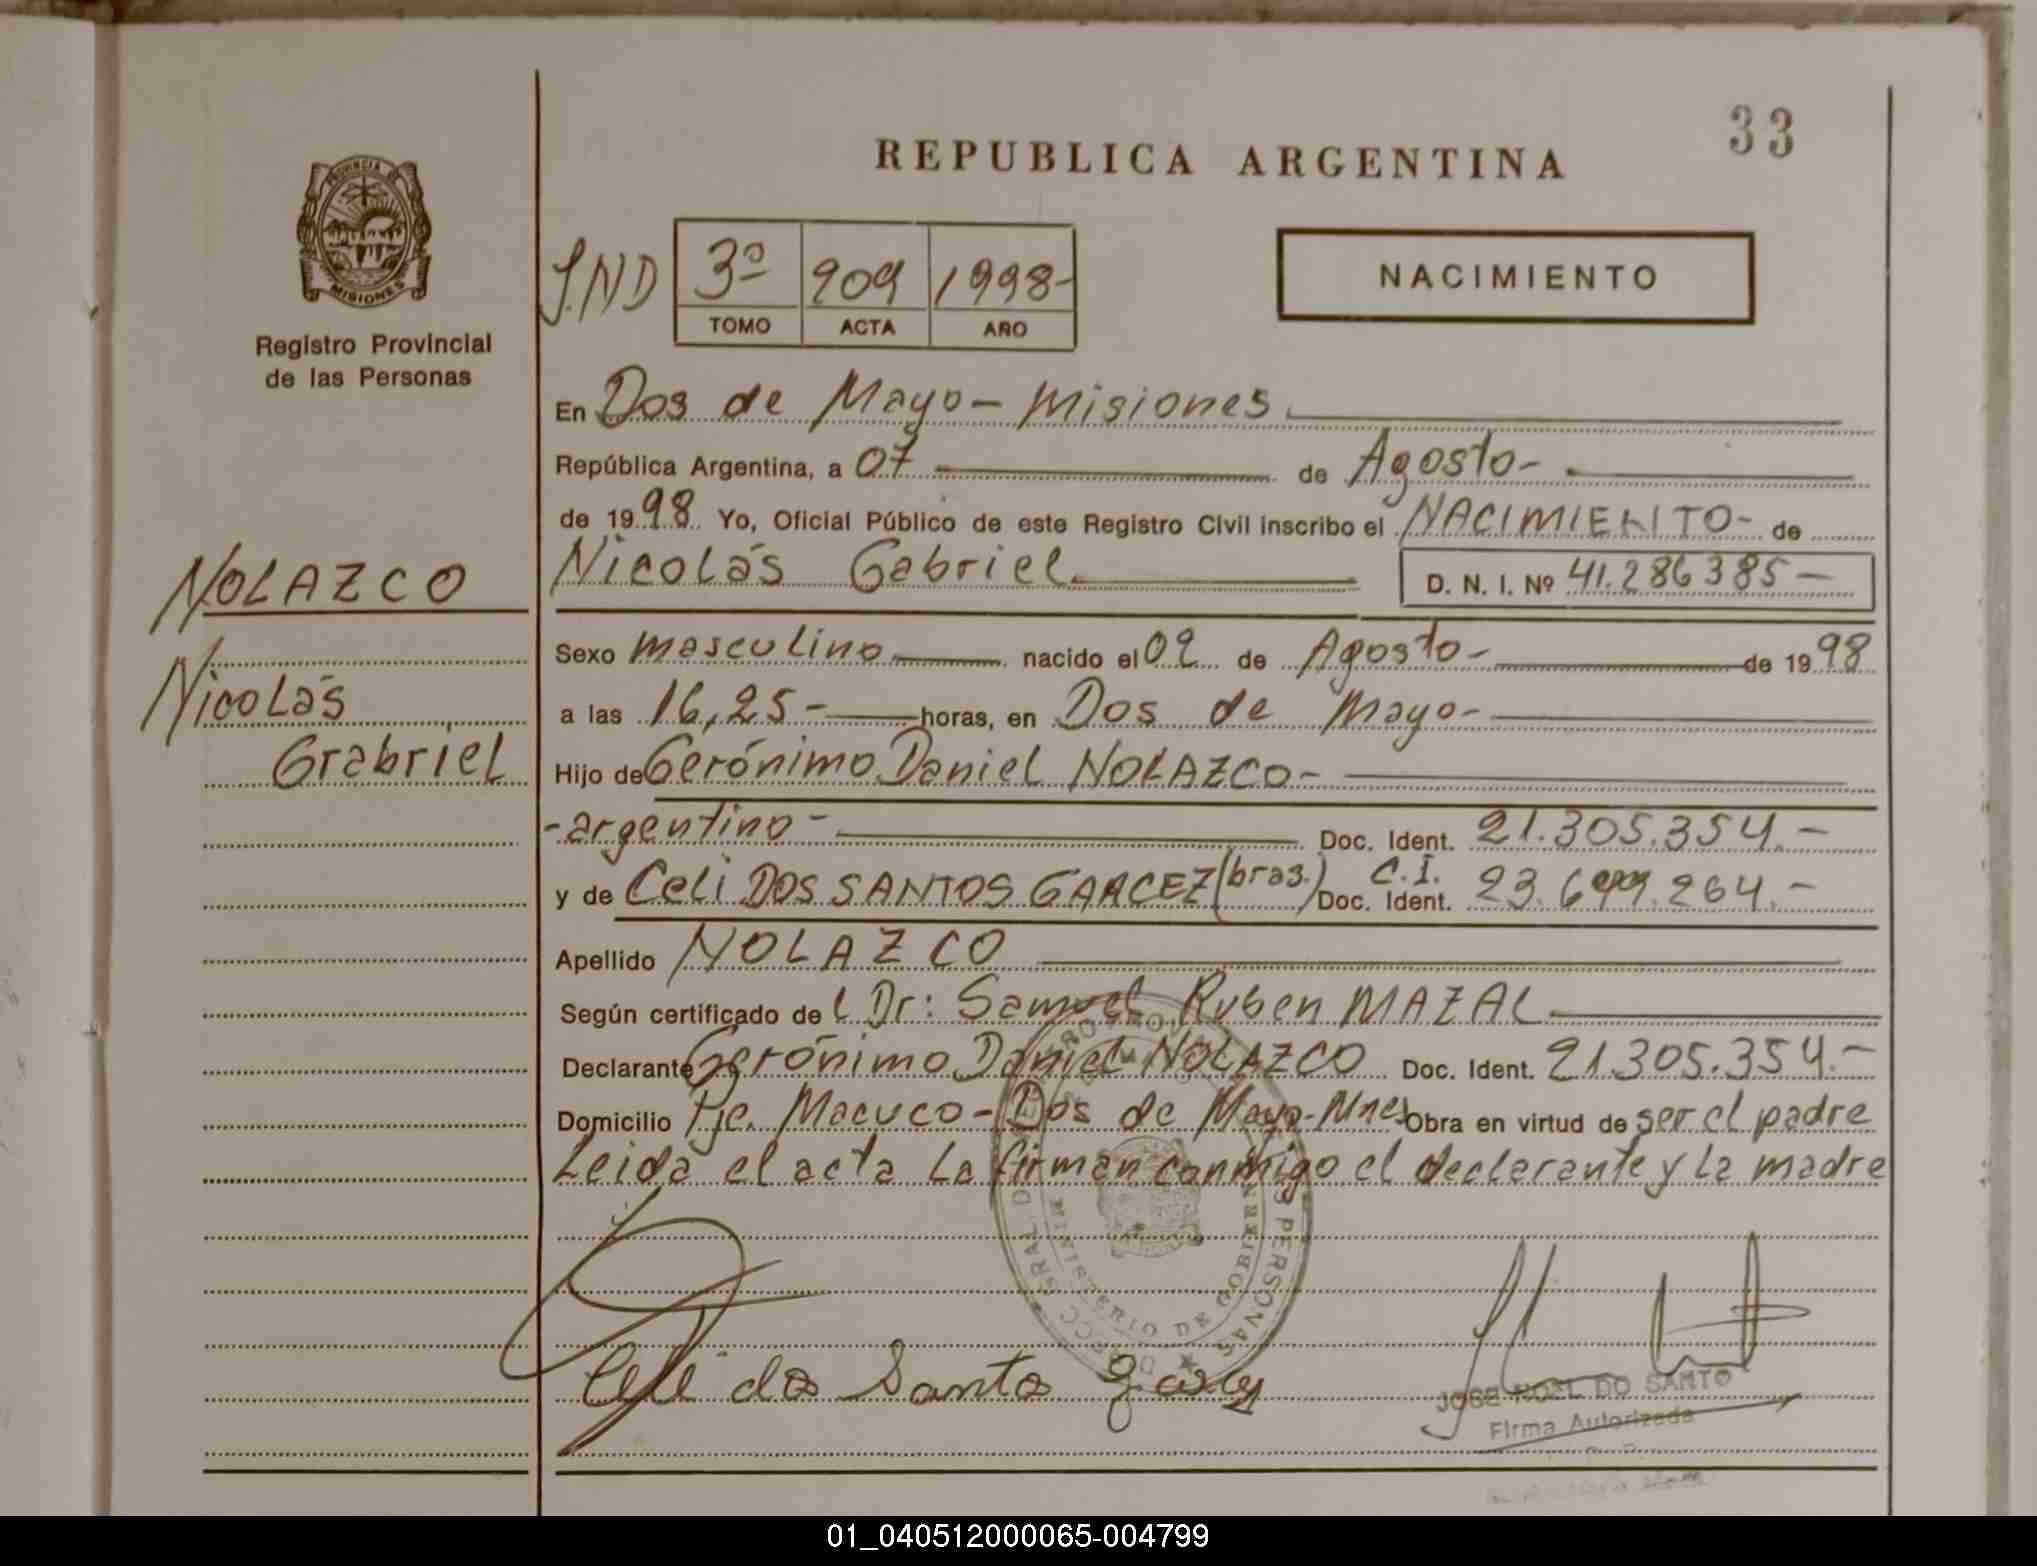 33
REPUBLICA ARGENTINA
PROVINCIA DE
MISIONES
Registro Provincial
de las Personas
3º 909 1998-
TOMO ACTA AÑO
NACIMIENTO
En Dos de Mayo - Misiones
República Argentina, a 07 de Agosto-
de 1998 Yo, Oficial Público de este Registro Civil inscribo el NACIMIENTO- de
NOLAZCO
Nicolás Gabriel D. N. I. Nº 41.286385-
Sexo masculino nacido el 02 de Agosto- de 1998
Nicolás
a las 16,25- horas, en Dos de Mayo-
Gabriel
Hijo de Gerónimo Daniel NOLAZCO-
-argentino- Doc. Ident. 21.305.354.-
y de Celi DOS SANTOS GARCEZ (bras.) C.I. Doc. Ident. 23.699.264.-
Apellido NOLAZCO
Según certificado de l Dr: Samuel Ruben MAZAL
Declarante Gerónimo Daniel NOLAZCO Doc. Ident. 21.305.354.-
Domicilio Pje. Macuco - Dos de Mayo - Mnes Obra en virtud de ser el padre
Leida el acta la firman conmigo el declarante y la madre
MINISTERIO DE GOBIERNO
PERSONAS
JOSE NOEL DO SANTO
Firma Autorizada
01_040512000065-004799